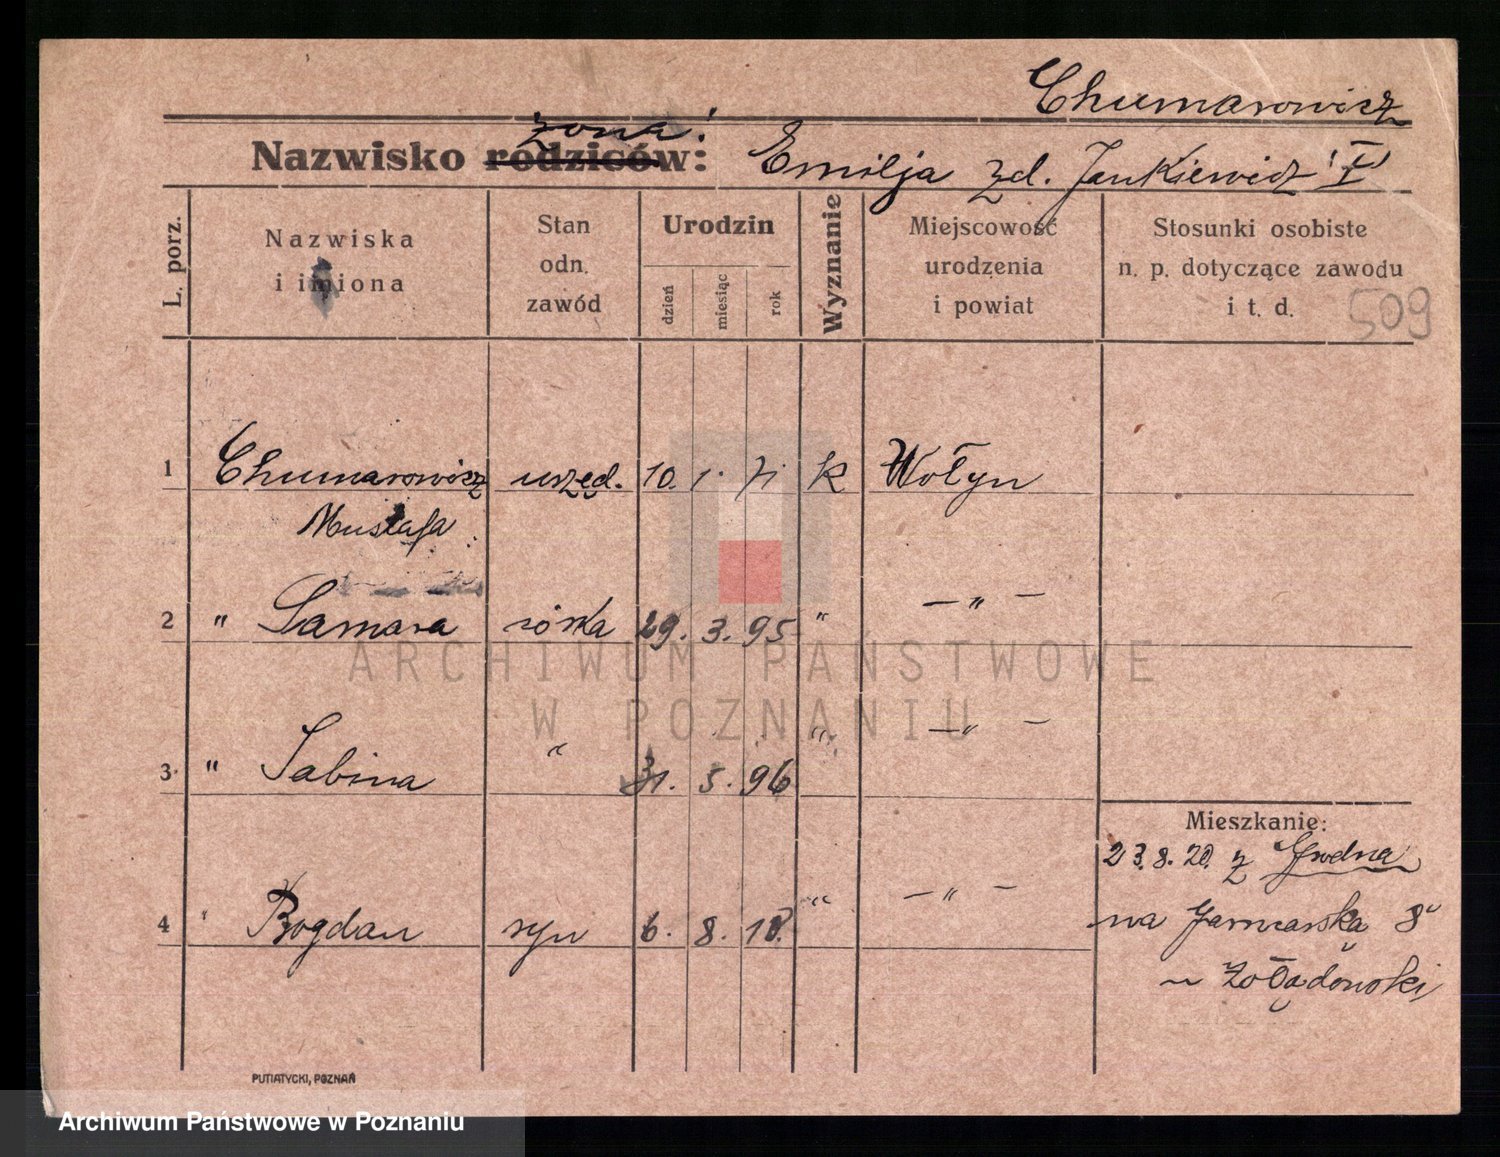 Chumarowicz
żona:
Nazwisko rodziców: Emilja zd. Jankiewicz I
L. porz.
Nazwiska i imiona
Stan odn. zawód
Urodzin
dzień
miesiąc
rok
Wyznanie
Miejscowość urodzenia i powiat
Stosunki osobiste n. p. dotyczące zawodu i t. d.
509
1 Chumarowicz urzęd. 10. 1. 71 k Wołyn
Mustafa
2 " Tamara córka 29. 3. 95 " — " —
3 " Sabina " 31. 5. 96 " — " —
Mieszkanie:
23.8.20. z Grodna
4 " Bogdan syn 6. 8. 18. " — " —
na Garncarska 8
Żołądowski
PUTIATYCKI, POZNAŃ
ARCHIWUM PAŃSTWOWE
W POZNANIU
Archiwum Państwowe w Poznaniu